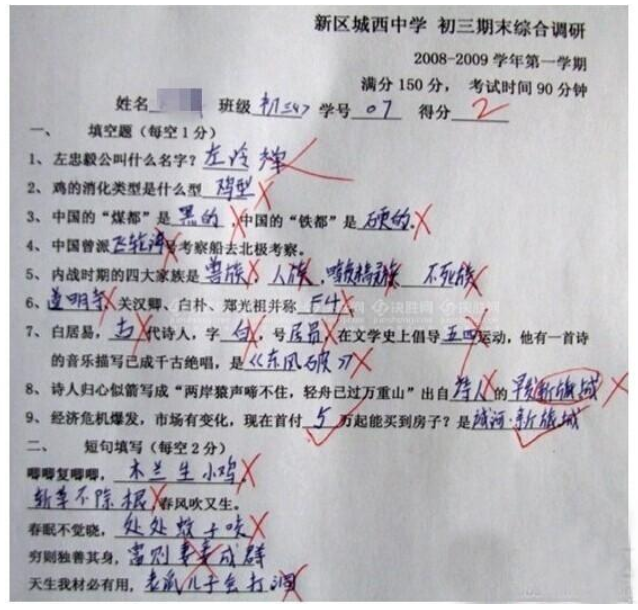 新区城西中学 初三期末综合调研
2008-2009 学年第一学期
满分 150 分， 考试时间 90 分钟
姓名 班级 初三(4) 学号 07 得分 2
一、 填空题（每空 1 分）
1、左忠毅公叫什么名字？左冷禅
2、鸡的消化类型是什么型 鸡型
3、中国的“煤都”是 黑的 ,中国的“铁都”是 硬的。
4、中国曾派 飞轮海 号考察船去北极考察。
5、内战时期的四大家族是 兽族 ，人族 ，暗夜精灵族 不死族
6、道明寺、关汉卿、白朴、郑光祖并称 F4
7、白居易，古 代诗人，字 白 ，号 居易 在文学史上倡导 五四 运动，他有一首诗
的音乐描写已成千古绝唱，是《东风破》
8、诗人归心似箭写成“两岸猿声啼不住，轻舟已过万重山”出自 诗人 的 新旅城
9、经济危机爆发，市场有变化，现在首付 5 万起能买到房子？是 城河·新旅城
二、 短句填写（每空 2 分）
唧唧复唧唧，木兰生小鸡。
斩草不除根 春风吹又生。
春眠不觉晓，处处蚊子咬
穷则独善其身，富则妻妾成群
天生我材必有用，老鼠儿子会打洞
决胜网